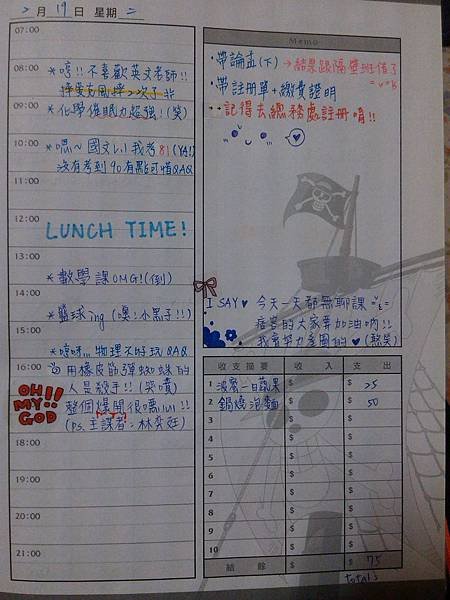 2月19日 星期二
07:00
08:00
*哼!!不喜歡英文老師!!
09:00
*化學催眠力超強!(笑)
10:00
*嗯~國文L.1我考81(YA!)
沒有考到90有點可惜QAQ
11:00
12:00
LUNCH TIME!
13:00
*數學課OMG!(倒)
14:00
*籃球ing(嘿!小黑子!!)
15:00
物理不好玩QAQ
16:00
用橡皮筋彈蜘蛛的
人是殺手!!(哭噴)
OH!! MY!! GOD
整個爆開很噁
(ps.主謀者:林
18:00
19:00
20:00
21:00
Memo
·帶論孟(下)→結果跟隔壁班借了
·帶註冊單+繳費證明
記得去總務處註冊唷!!
I SAY♥ 今天一天都無聊課
的大家要加油吶!!
我會努力
收支摘要 收入 支出
1 波蜜一日蔬果 $ $ 25
2 鍋燒泡麵 $ $ 50
3 $ $
4 $ $
5 $ $
6 $ $
7 $ $
8 $ $
9 $ $
10 $ $
結餘 $ $ 75
total